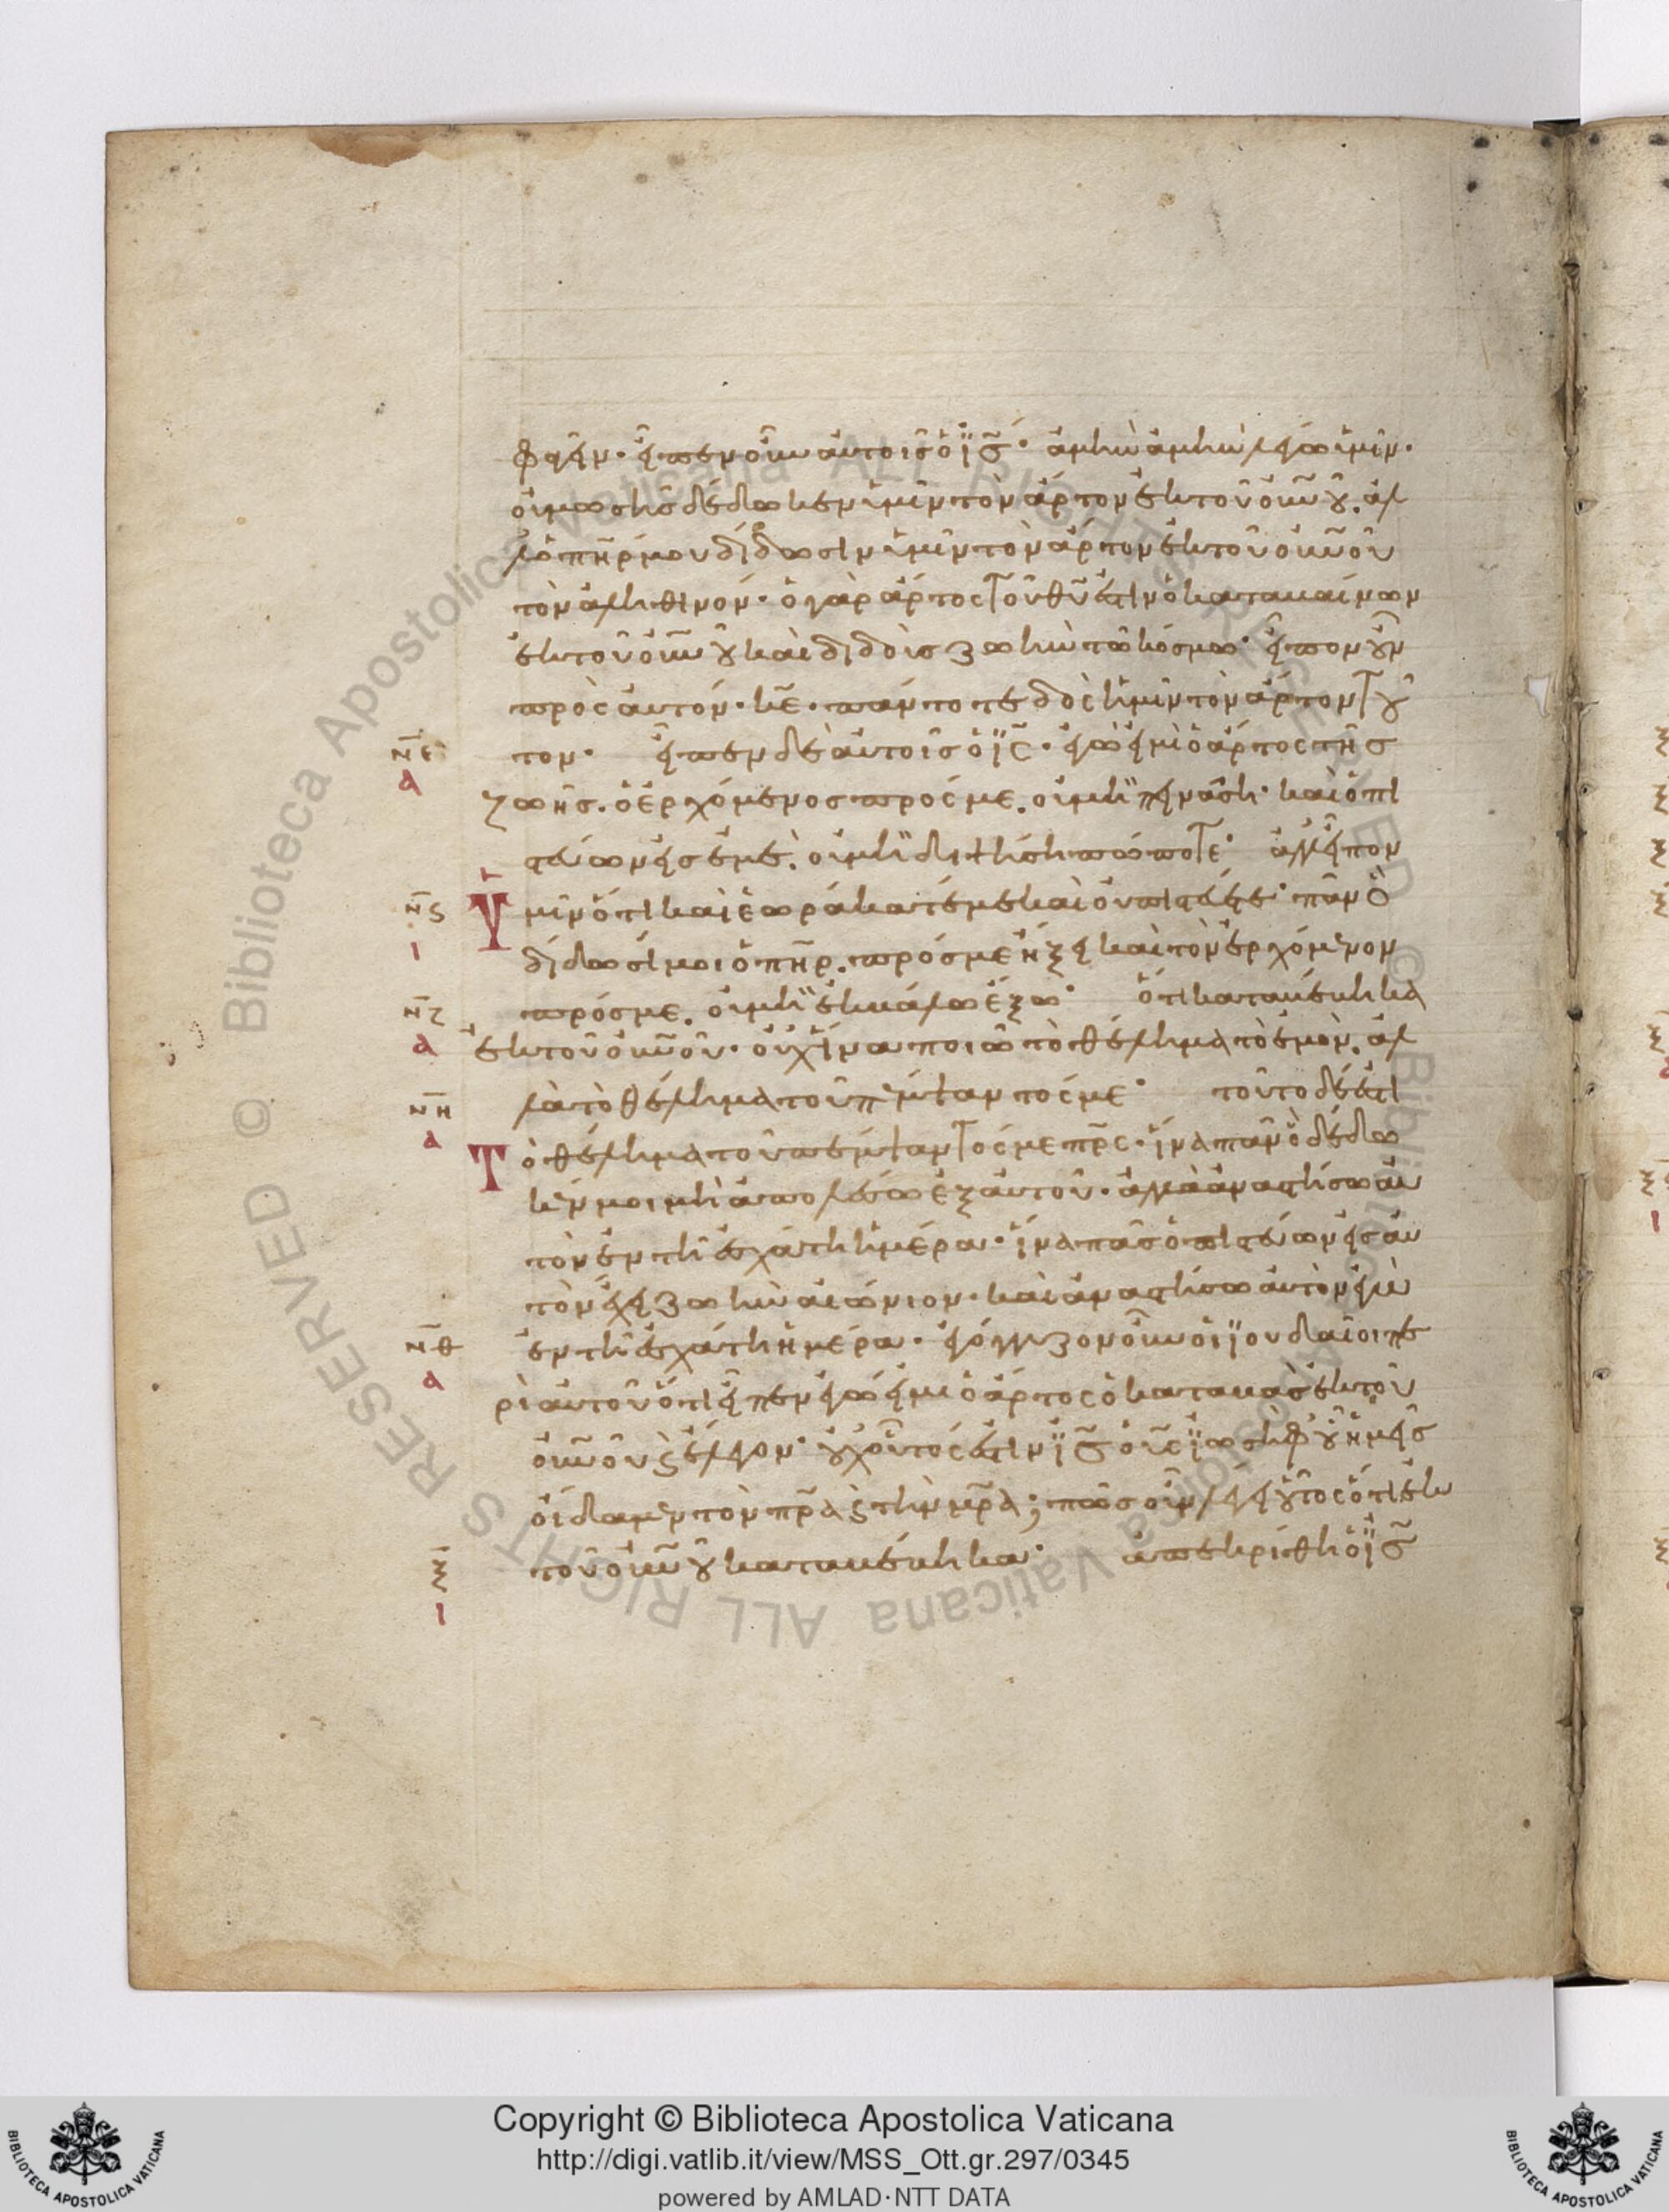 φαγεῖν· εἶπεν οὖν αὐτοῖς ὁ ἰ̅ς̅· ἀμὴν ἀμὴν λέγω ὑμῖν·
οὐ μωσῆς δέδωκεν ὑμῖν τὸν ἄρτον ἐκ τοῦ οὐ̅νου̅. ἀλ
λ' ὁ π̅η̅ρ μου δίδωσιν ὑμῖν τὸν ἄρτον ἐκ τοῦ οὐ̅νοῦ̅
τὸν ἀληθινόν· ὁ γὰρ ἄρτος τοῦ θ̅υ̅ ἐστιν ὁ καταβαίνων
ἐκ τοῦ οὐ̅νου̅ καὶ διδοὺς ζωὴν τῶ κόσμω· εἶπον οὖν
πρὸς αὐτόν· κ̅ε̅· πάντοτε δὸς ἡμῖν τὸν ἄρτον τοῦ
τον· εἶπεν δὲ αὐτοῖς ὁ ἰ̅ς̅· ἐγώ εἰμι ὁ ἄρτος τῆς
ζωῆς. ὁ ἐρχόμενος πρός με. οὐ μὴ πεινάση· καὶ ὁ πι
στεύων εἰς ἐμὲ. οὐ μὴ διψήση πώποτε· ἀλλ' εἶπον
Ὑμῖν ὅτι καὶ ἑωράκατέ με καὶ οὐ πιστεύετε· πᾶν ὃ
δίδωσί μοι ὁ π̅η̅ρ. πρός με ἥξει καὶ τὸν ἐρχόμενον
πρός με. οὐ μὴ ἐκβάλω ἔξω· ὅτι καταβέβηκα
ἐκ τοῦ οὐ̅νοῦ̅· οὐχ ἵνα ποιῶ τὸ θέλημα τὸ ἐμὸν. ἀλ
λὰ τὸ θέλημα τοῦ πέμψαντός με· τοῦτο δέ ἐστι
Τὸ θέλημα τοῦ πέμψαντός με π̅ρ̅ς· ἵνα πᾶν ὃ δέδω
κέν μοι μὴ ἀπολέσω ἐξ αὐτοῦ· ἀλλὰ ἀναστήσω αὐ
τὸν ἐν τῆ ἐσχάτη ἡμέρα· ἵνα πᾶς ὁ πιστεύων εἰς αὐ
τὸν ἔχει ζωὴν αἰώνιον· καὶ ἀναστήσω αὐτὸν ἐγὼ
ἐν τῆ ἐσχάτη ἡμέρα· ἐγόγγυζον οὖν οἱ ἰουδαῖοι πε
ρὶ αὐτοῦ ὅτι εἶπεν ἐγώ εἰμι ὁ ἄρτος ὁ καταβὰς ἐκ τοῦ
οὐ̅νοῦ̅ ϗ ἔλεγον· οὐχ οὗτός ἐστιν ἰ̅ς̅ ὁ υ̅ς̅ ἰωσὴφ οὗ ἡμεῖς
οἴδαμεν τὸν π̅ρ̅α ϗ τὴν μ̅ρ̅α; πῶς οὖν λέγει οὗτος ὅτι ἐκ
τοῦ οὐ̅νου̅ καταβέβηκα· ἀπεκρίθη ὁ ἰ̅ς̅
ν̅ε̅
α
ν̅ϛ̅
ι
ν̅ζ̅
α
ν̅η̅
α
ν̅θ̅
α
ξ̅
ι
Copyright © Biblioteca Apostolica Vaticana
http://digi.vatlib.it/view/MSS_Ott.gr.297/0345
powered by AMLAD·NTT DATA
BIBLIOTECA APOSTOLICA VATICANA
BIBLIOTECA APOSTOLICA VATICANA
© Biblioteca Apostolica Vaticana ALL RIGHTS RESERVED © Biblioteca Apostolica Vaticana ALL RIGHTS RESERVED